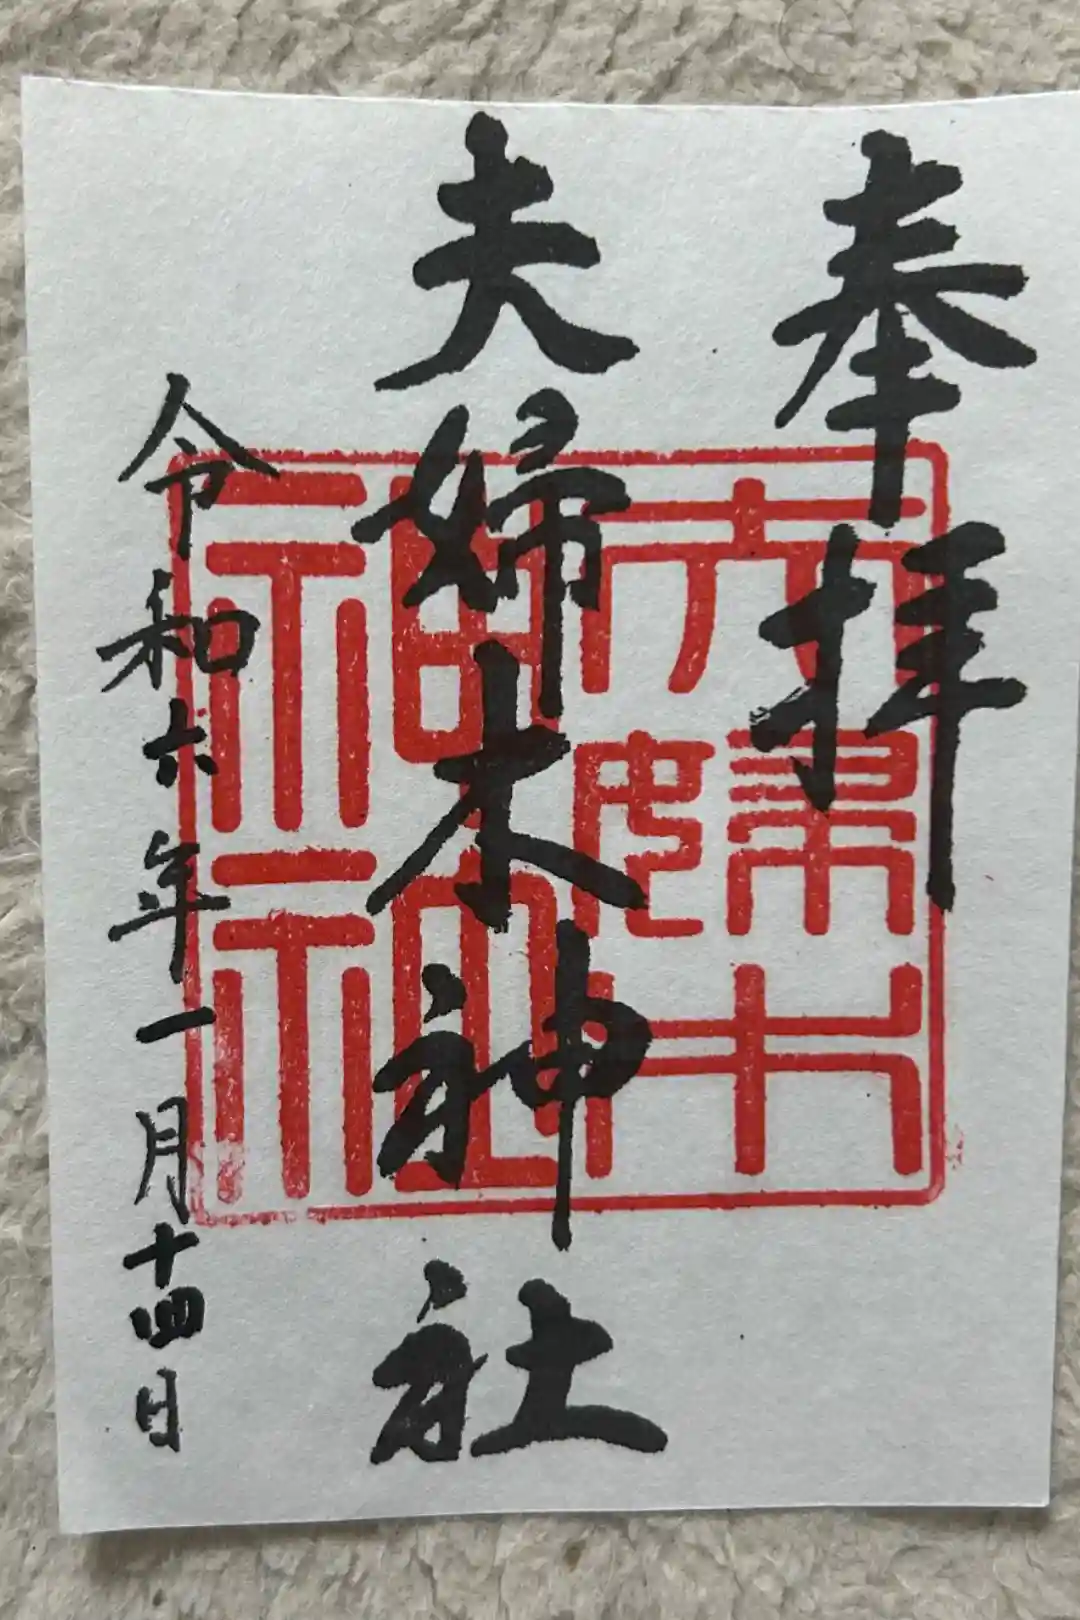 奉拝
夫婦木神社
令和六年一月十四日
夫婦木
神社